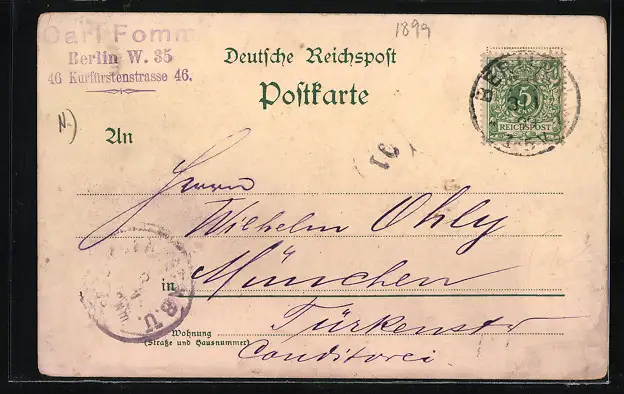 Carl Fomm
Berlin W. 35
46 Kurfürstenstrasse 46.
1899
Deutsche Reichspost
Postkarte
BERLIN
5
REICHSPOST
N.)
An
Herrn
Wilhelm Ohly
in München
Türkenstr
Wohnung
(Straße und Hausnummer)
Conditorei
B.U.